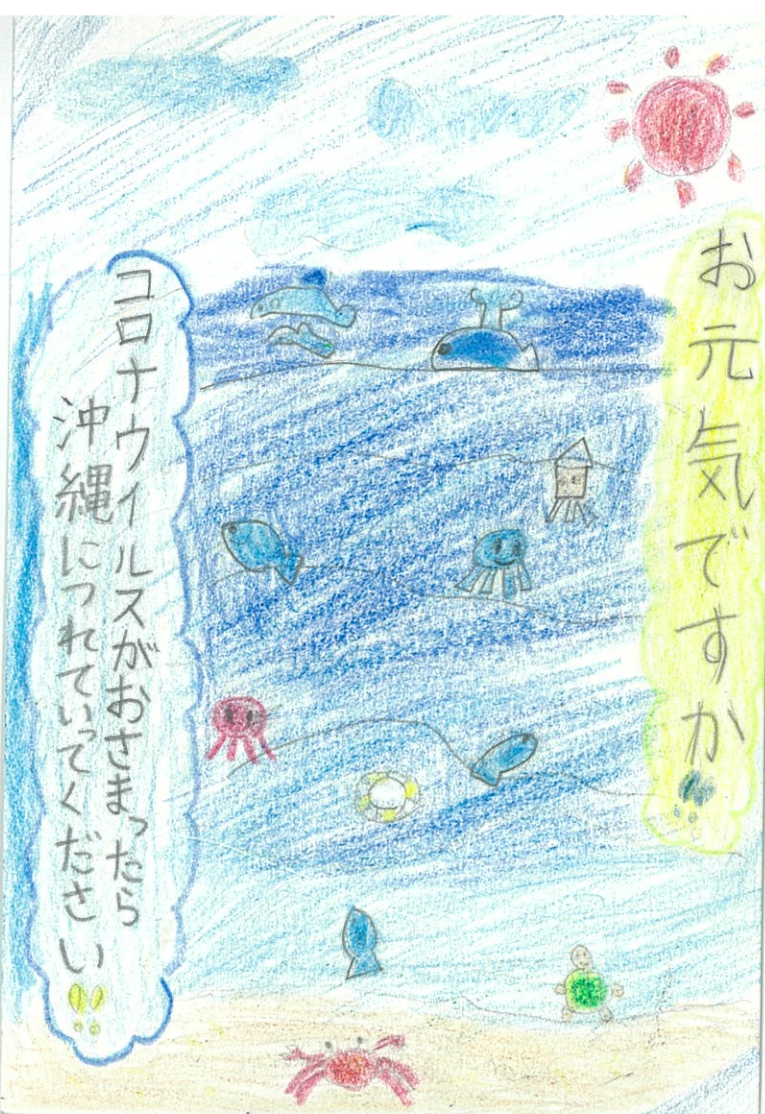 お元気ですか
コロナウイルスがおさまったら
沖縄につれていってください!!